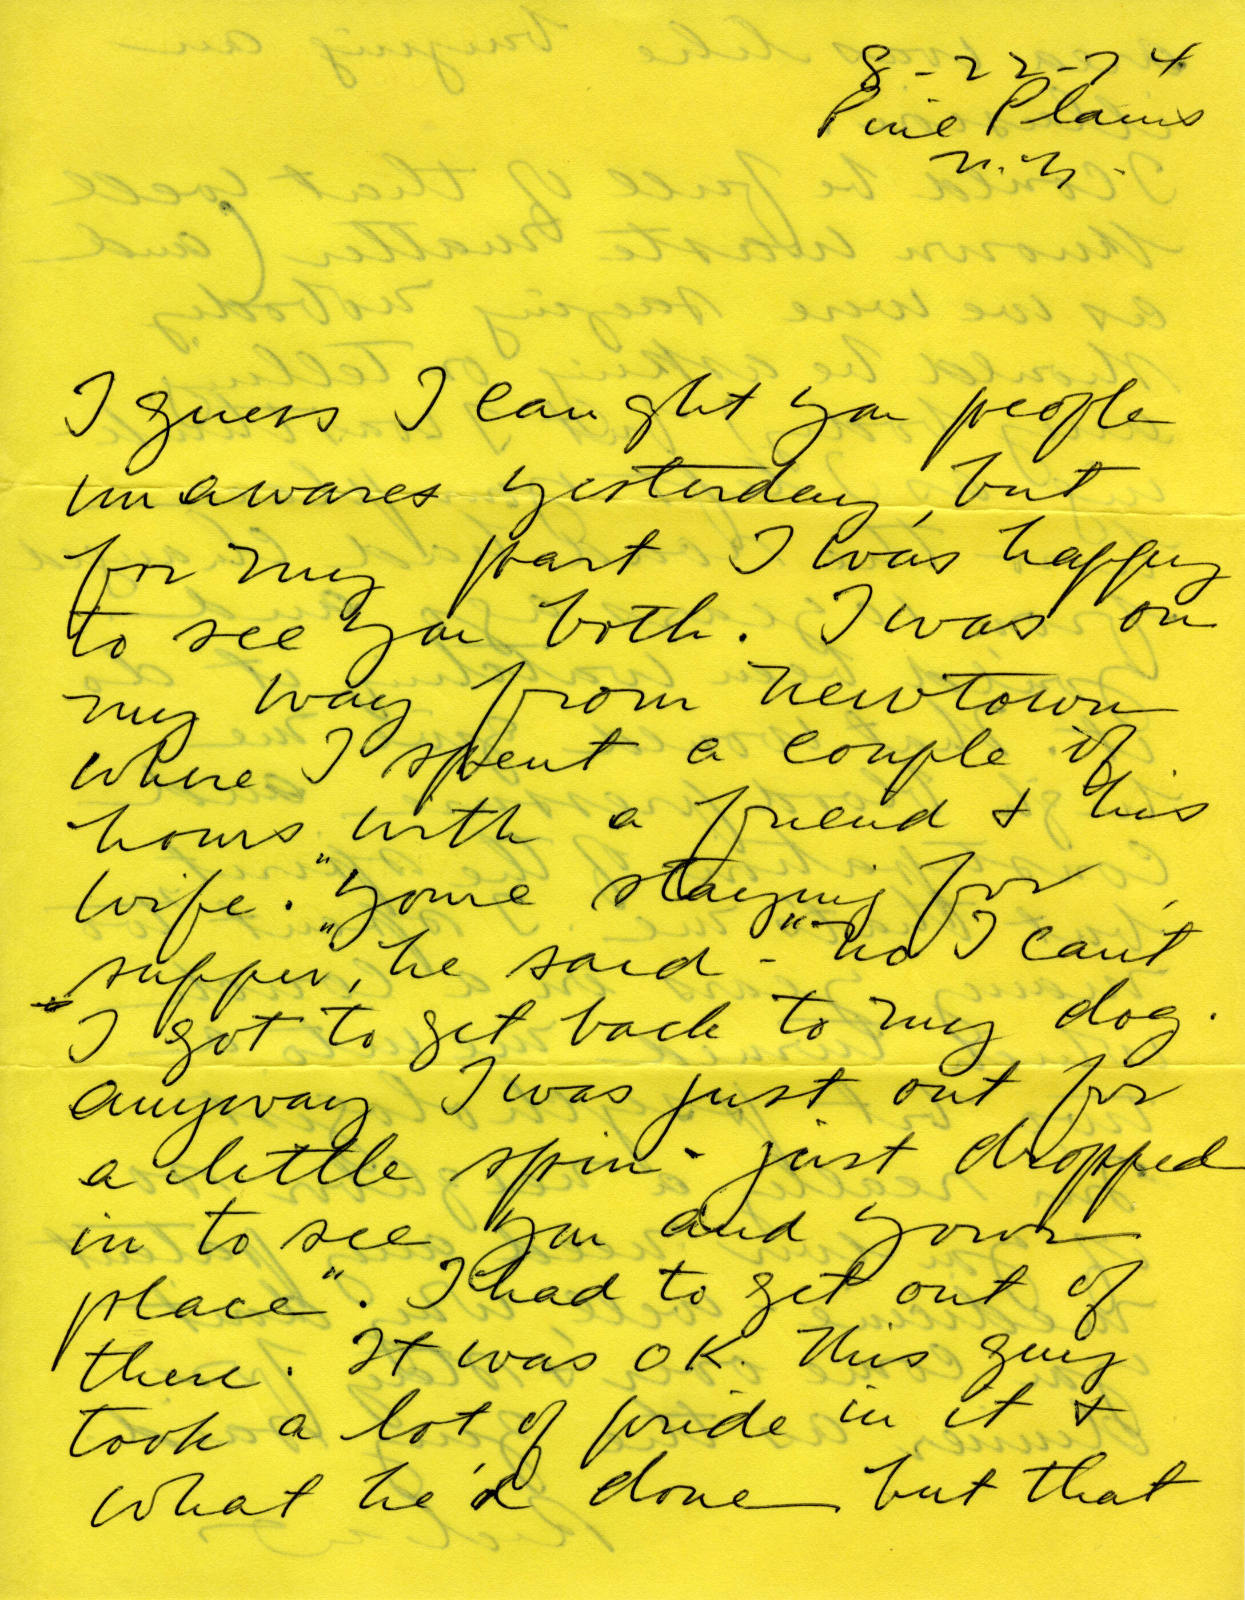 8-22-74
Pine Plains
N.Y.
I guess I caught you people
unawares yesterday, but
for my part I was happy
to see you both. I was on
my way from Newtown
where I spent a couple of
hours with a friend & his
wife. "You're staying for
supper", he said - "no I can't
I got to get back to my dog.
anyway I was just out for
a little spin - just dropped
in to see you and your
place". I had to get out of
there. It was OK. This guy
took a lot of pride in it &
what he'd done but that